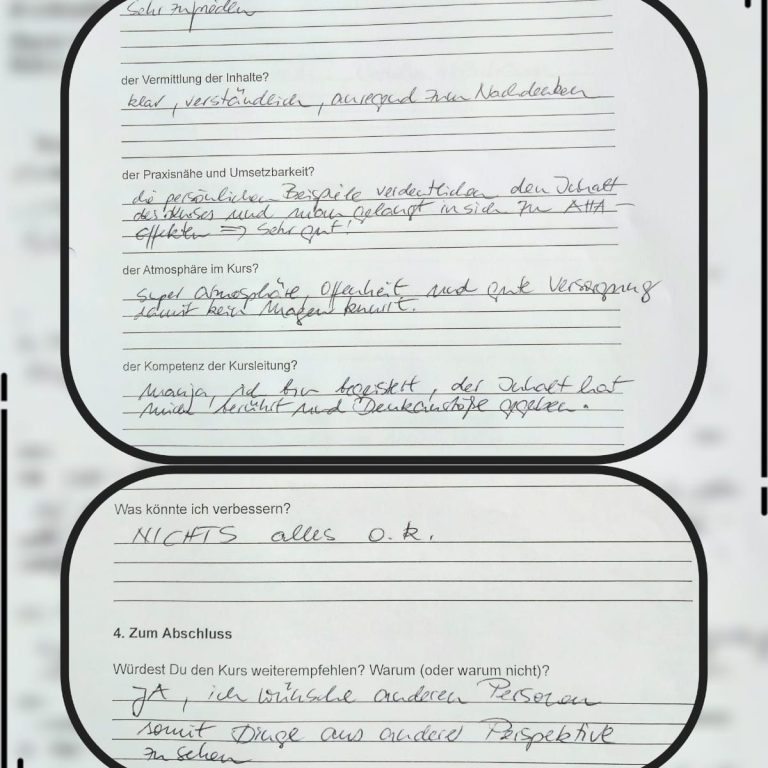 Sehr zufrieden
der Vermittlung der Inhalte?
klar, verständlich, anregend zum Nachdenken
der Praxisnähe und Umsetzbarkeit?
die persönlichen Beispiele verdeutlichen den Inhalt
des Kurses und man gelangt in sich zu AHA-
Effekten => Sehr gut!
der Atmosphäre im Kurs?
super Atmosphäre, Offenheit und gute Versorgung
damit kein Magen knurrt.
der Kompetenz der Kursleitung?
ich bin begeistert, der Inhalt hat
mich berührt und Denkanstöße gegeben.
Was könnte ich verbessern?
NICHTS alles o.k.
4. Zum Abschluss
Würdest Du den Kurs weiterempfehlen? Warum (oder warum nicht)?
JA, ich wünsche anderen Personen
somit Dinge aus anderer Perspektive
zu sehen